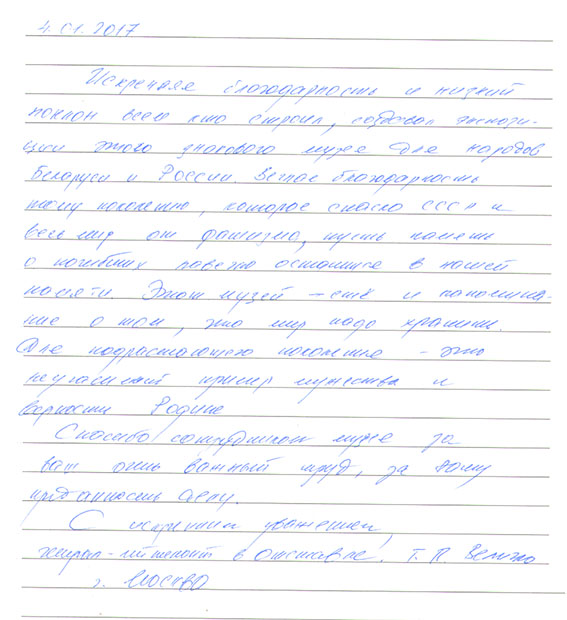 4.01.2017
Искренняя благодарность и низкий
поклон всем кто строил, создавал экспози-
ции этого знакового музея для народов
Беларуси и России. Вечная благодарность
тому поколению, которое спасло СССР и
весь мир от фашизма, пусть память
о погибших навечно останется в нашей
памяти. Этот музей – ещё и напомина-
ние о том, что мир надо хранить.
Для подрастающего поколения – это
неугасимый пример мужества и
верности Родине
Спасибо сотрудникам музея за
ваш очень важный труд, за вашу
преданность делу.
С искренним уважением,
генерал-лейтенант в отставке. Г. П.
г. Москва